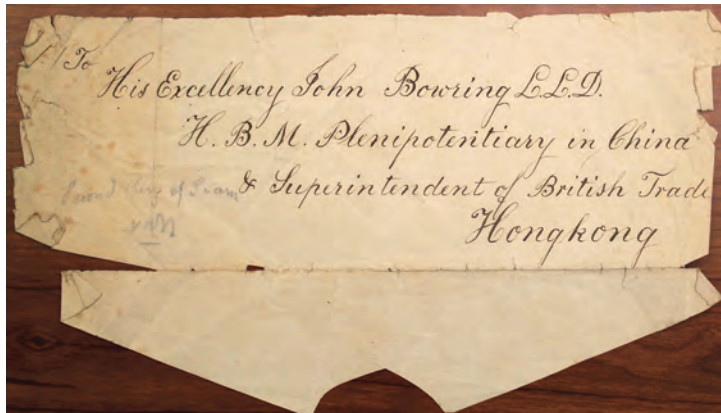 To
His Excellency John Bowring L.L.D.
H. B. M. Plenipotentiary in China
& Superintendent of British Trade
Hongkong
Second King of Siam